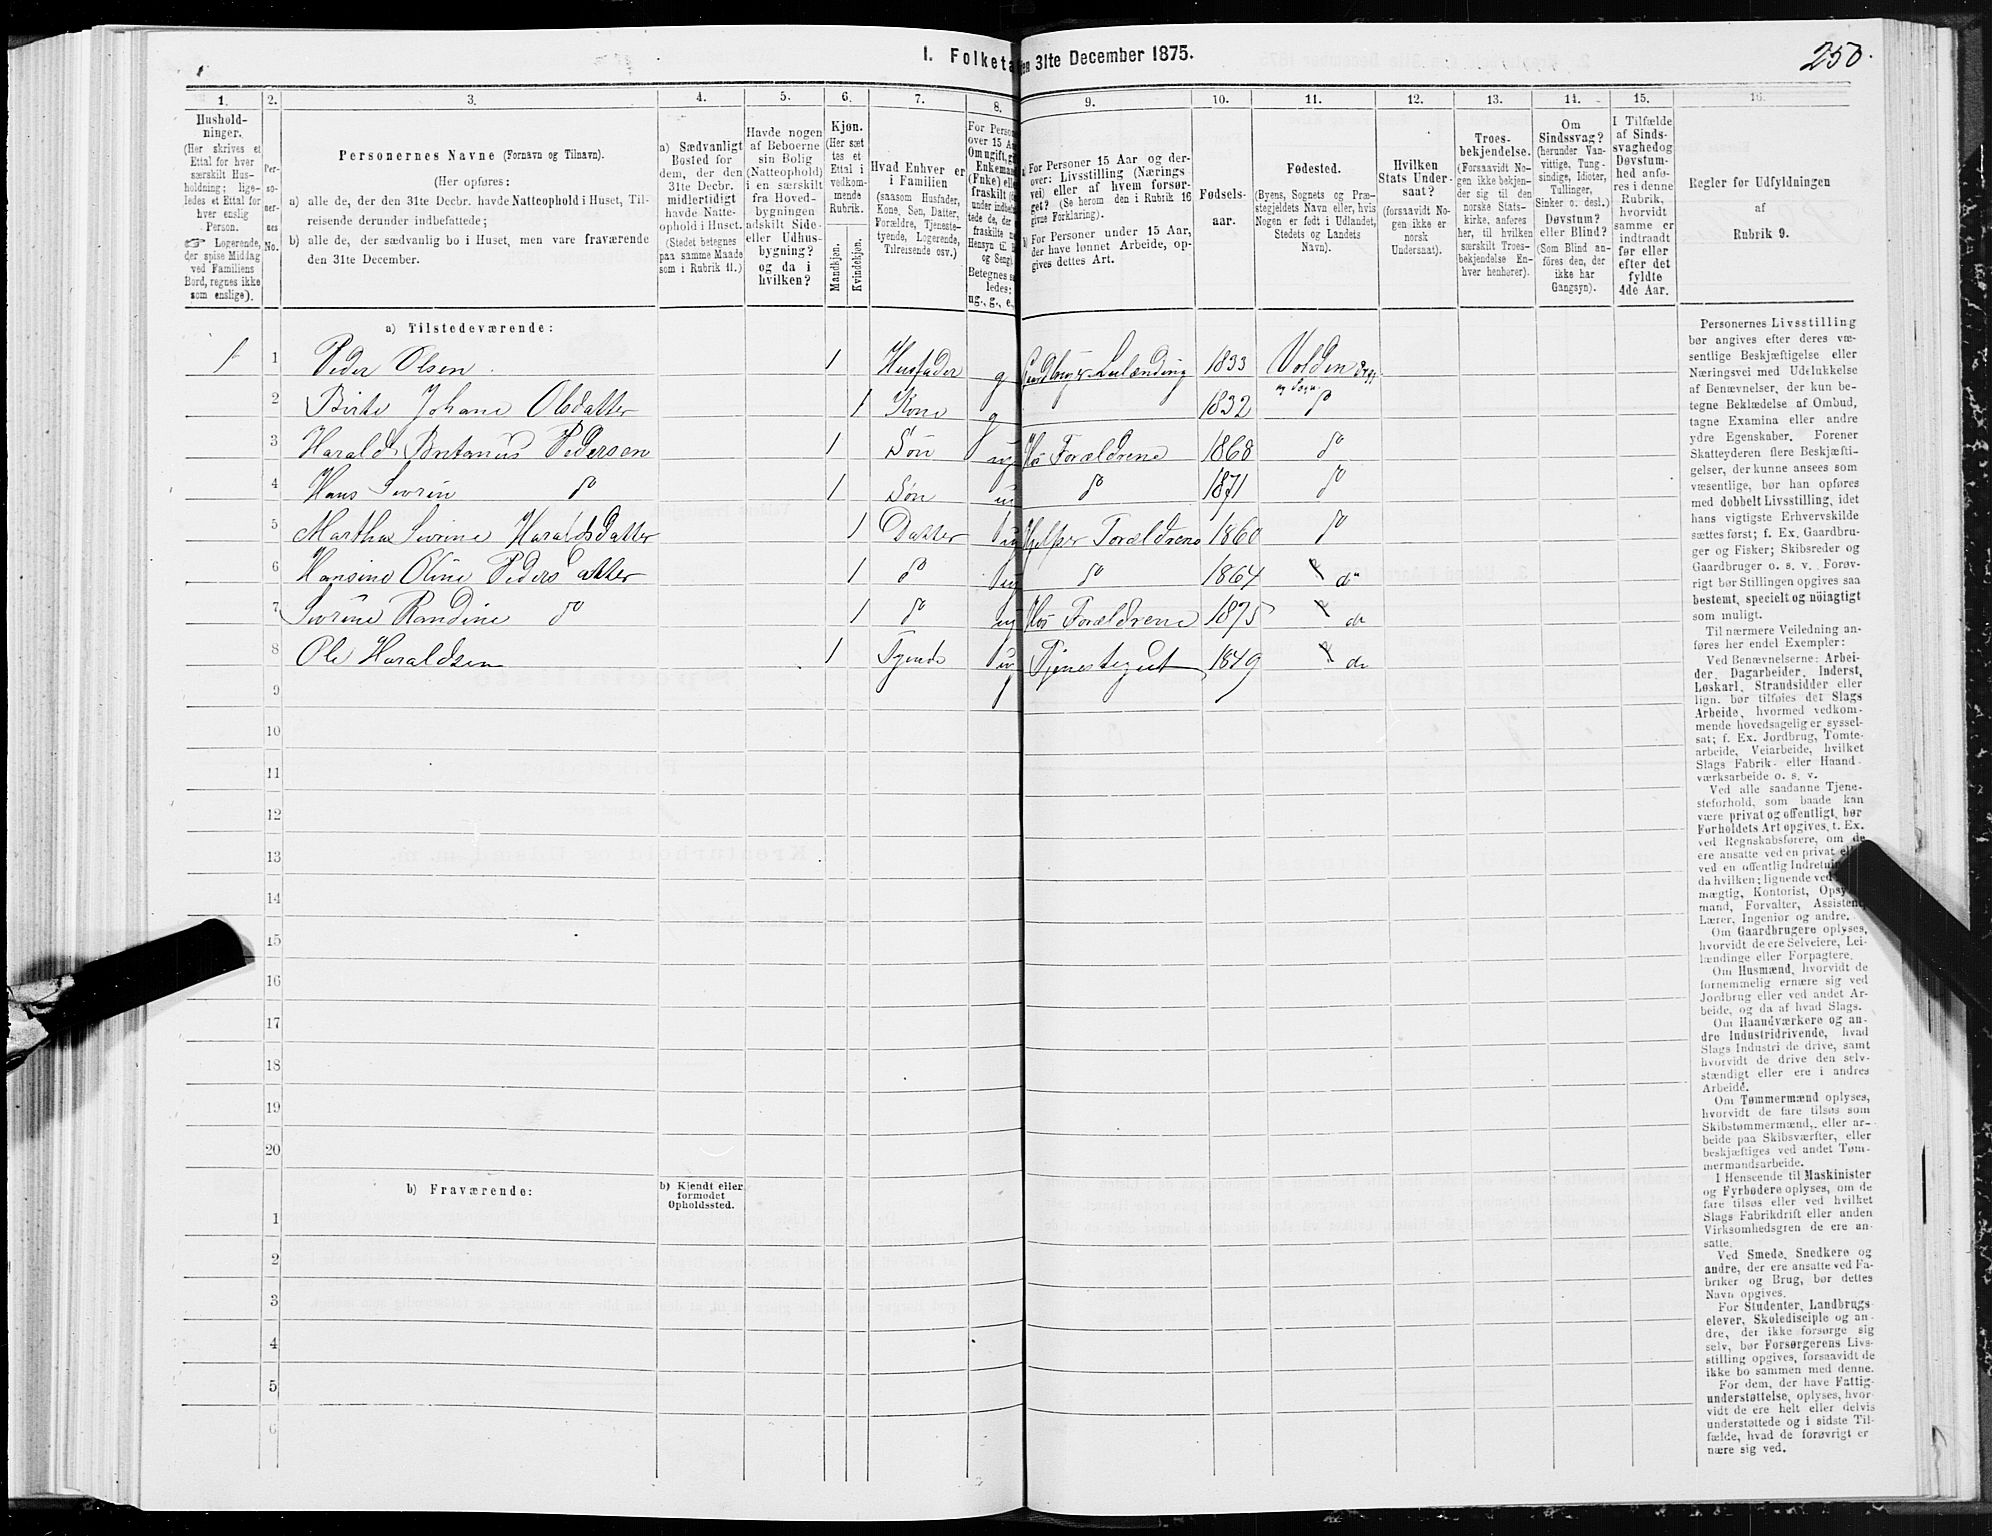 I. Folketa
en 31te December 1875.
250.
1.
2.
3.
4.
5.
6.
7.
8.
9.
10.
11.
12.
13.
14.
15.
16.
Hushold-
ninger.
(Her skrives et
Ettal for hver
særskilt Hus-
holdning; lige-
ledes et Ettal for
hver enslig
Person.
☞ Logerende,
der spise Middag
ved Familiens
Bord, regnes ikke
som enslige).
Per-
so-
ner-
nes
No.
Personernes Navne (Fornavn og Tilnavn).
(Her opføres:
a) alle de, der den 31te Decbr. havde Natteophold i Huset, Til-
reisende derunder indbefattede;
b) alle de, der sædvanlig bo i Huset, men vare fraværende
den 31te December.
a) Sædvanligt
Bosted for
dem, der den
31te Decbr.
midlertidigt
havde Natte-
ophold i Huset.
(Stedet betegnes
paa samme Maade
som i Rubrik 11.)
Havde nogen
af Beboerne
sin Bolig
(Natteophold)
i en særskilt
fra Hoved-
bygningen
adskilt Side-
eller Udhus-
bygning?
og da i
hvilken?
Kjøn.
(Her sæt
tes et
Ettal i
vedkom-
mende
Rubrik.
Mandkjøn.
Kvindekjøn.
Hvad Enhver er
i Familien
(saasom Husfader,
Kone, Søn, Datter,
Forældre, Tjeneste-
tyende, Logerende,
Tilreisende osv.)
For Perso
over 15 A
Om ugift, gi
Enkema
(Fnke) elle
fraskilt (
under indbe
tede de, der
fraskilte
Hensyn til B
og Seng).
Betegnes s
ledes:
ug., g., e.,
a) For Personer 15 Aar og der-
over: Livsstilling (Nærings
vei) eller af hvem forsør-
get? (Se herom den i Rubrik 16
givne Forklaring).
b) For Personer under 15 Aar,
der have lønnet Arbeide, op-
gives dettes Art.
Fødsels-
aar.
Fødested.
(Byens, Sognets og Præ-
stegjeldets Navn eller, hvis
Nogen er født i Udlandet,
Stedets og Landets
Navn).
Hvilken
Stats Under-
saat?
(forsaavidt No-
gen ikke er
norsk
Undersaat).
Troes-
bekjendelse.
(Forsaavidt No-
gen ikke bekjen-
der sig til den
norske Stats-
kirke, anføres
her, til hvilken
særskilt Troes-
bekjendelse En-
hver henhører).
Om
Sindssvag?
(herunder Van-
vittige, Tung-
sindige, Idioter,
Tullinger,
Sinker o. desl.)
Døvstum?
eller Blind?
(Som Blind an-
føres den, der
ikke har
Gangsyn).
I Tilfælde
af Sinds-
svaghedog
Døvstum-
hed anfø-
res i denne
Rubrik,
hvorvidt
samme er
indtraadt
før eller
efter det
fyldte
4de Aar.
Regler før Udfyldningen
af
Rubrik 9.
a) Tilstedeværende:
1 1 Peder Olsen 1 Husfader g Gaardbruger Leilænding 1833 Volden
og Sogn
2 Birte Johane Olsdatter 1 Kone g 1832 do
3 Harald Pedersen 1 Søn ug Hos Forældrene 1868 do
4 Hans Sivrin do 1 Søn ug do 1871 do
5 Martha Sivrine Haraldsdatter 1 Datter ug Hjelper Forældrene 1860 do
6 Hansine Oline Pedersdatter 1 do ug do 1864 do
7 Sivrine Randine do 1 do ug Hos Forældrene 1875 do
8 Ole Haraldsen 1 Tyende ug Tjenestegut 1849 do
9
10
11
12
13
14
15
16
17
18
19
20
b) Fraværende:
b) Kjendt eller
formodet
Opholdssted.
1
2
3
4
5
6
Personernes Livsstilling
bør angives efter deres væ-
sentlige Beskjæftigelse eller
Næringsvei med Udelukkelse
af Benævnelser, der kun be-
tegne Beklædelse af Ombud,
tagne Examina eller andre
ydre Egenskaber. Forener
Skatteyderen flere Beskjæfti-
gelser, der kunne ansees som
væsentlige, bør han opføres
med dobbelt Livsstilling, idet
hans vigtigste Erhvervskilde
sættes først; f. Ex. Gaardbru-
ger og Fisker; Skibsreder og
Gaardbruger o. s. v. Forøv-
rigt bør Stillingen opgives saa
bestemt, specielt og nöiagtigt
som muligt.
Til nærmere Veiledning an-
føres her endel Exempler:
Ved Benævnelserne: Arbei-
der, Dagarbeider, Inderst,
Løskarl, Strandsidder eller
lign. bør tilføies det Slags
Arbeide, hvormed vedkom-
mende hovedsagelig er syssel-
sat; f. Ex. Jordbrug, Tomte-
arbeide, Veiarbeide, hvilket
Slags Fabrik- eller Haand-
værksarbeide o. s. v.
Ved alle saadanne Tjene-
steforhold, som baade kan
være privat og offentligt, bør
Forholdets Art opgives, t. Ex.
ved Regnskabsførere, om de
ere ansatte ved en privat el
ved en offentlig Indretni
da hvilken; lignende ved
mægtig, Kontorist, Opsy
mand, Forvalter, Assistent,
Lærer, Ingeniør og andre.
Om Gaardbrugere oplyses,
hvorvidt de ere Selveiere, Lei-
lændinge eller Forpagtere.
Om Husmænd, hvorvidt de
fornemmelig ernære sig ved
Jordbrug eller ved andet Ar-
beide, og da af hvad Slags.
Om Haandværkere og an-
dre Industridrivende, hvad
Slags Industri de drive, samt
hvorvidt de drive den selv-
stændigt eller ere i andres
Arbeide.
Om Tømmermænd oplyses,
hvorvidt de fare tilsøs som
Skibstømmermænd, eller ar-
beide paa Skibsværfter, eller
beskjæftiges ved andet Tøm-
mermandsarbeide.
I Henseende til Maskinister
og Fyrbødere oplyses, om de
fare tilsøs eller ved hvilket
Slags Fabrikdrift eller anden
Virksomhedsgren de ere an-
satte.
Ved Smede, Snedkere og
andre, der ere ansatte ved Fa-
briker og Brug, bør dettes
Navn opgives.
For Studenter, Landbrugs-
elever, Skoledisciple og an-
dre, der ikke forsørge sig
selv, bør Forsørgerens Livs-
stilling opgives, forsaavidt de
ikke bo sammen med denne.
For dem, der have Fattig-
understøttelse, oplyses, hvor-
vidt de ere helt eller delvis
understøttede og i sidste Til-
fælde, hvad de forøvrigt er
nære sig ved.